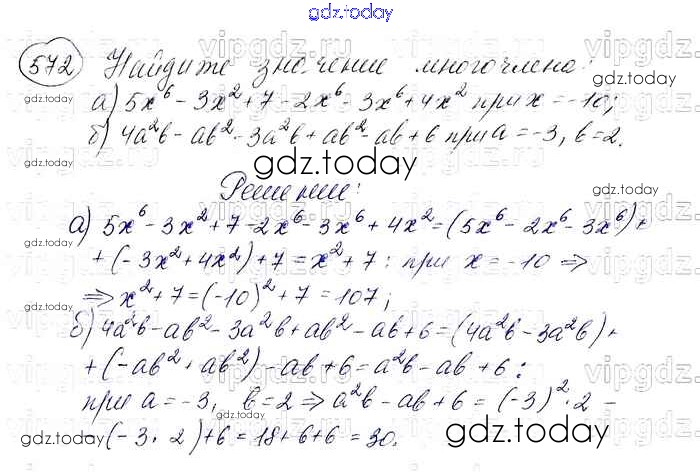 gdz.today
572 Найдите значение многочлена:
а) 5x⁶ - 3x² + 7 - 2x⁶ - 3x⁶ + 4x² при x = -10;
б) 4a²b - ab² - 3a²b + ab² - ab + 6 при a = -3, b = 2.
gdz.today
Решение:
а) 5x⁶ - 3x² + 7 - 2x⁶ - 3x⁶ + 4x² = (5x⁶ - 2x⁶ - 3x⁶) +
+ (-3x² + 4x²) + 7 = x² + 7 : при x = -10 ⇒
⇒ x² + 7 = (-10)² + 7 = 107;
б) 4a²b - ab² - 3a²b + ab² - ab + 6 = (4a²b - 3a²b) +
+ (-ab² + ab²) - ab + 6 = a²b - ab + 6 :
при a = -3, b = 2 ⇒ a²b - ab + 6 = (-3)² · 2 -
- (-3 · 2) + 6 = 18 + 6 + 6 = 30.
gdz.today